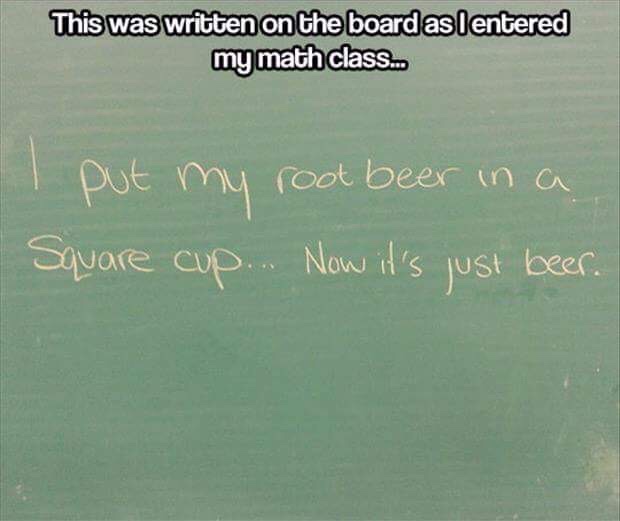 This was written on the board as I entered
my math class...
I put my root beer in a
Square cup... Now it's just beer.